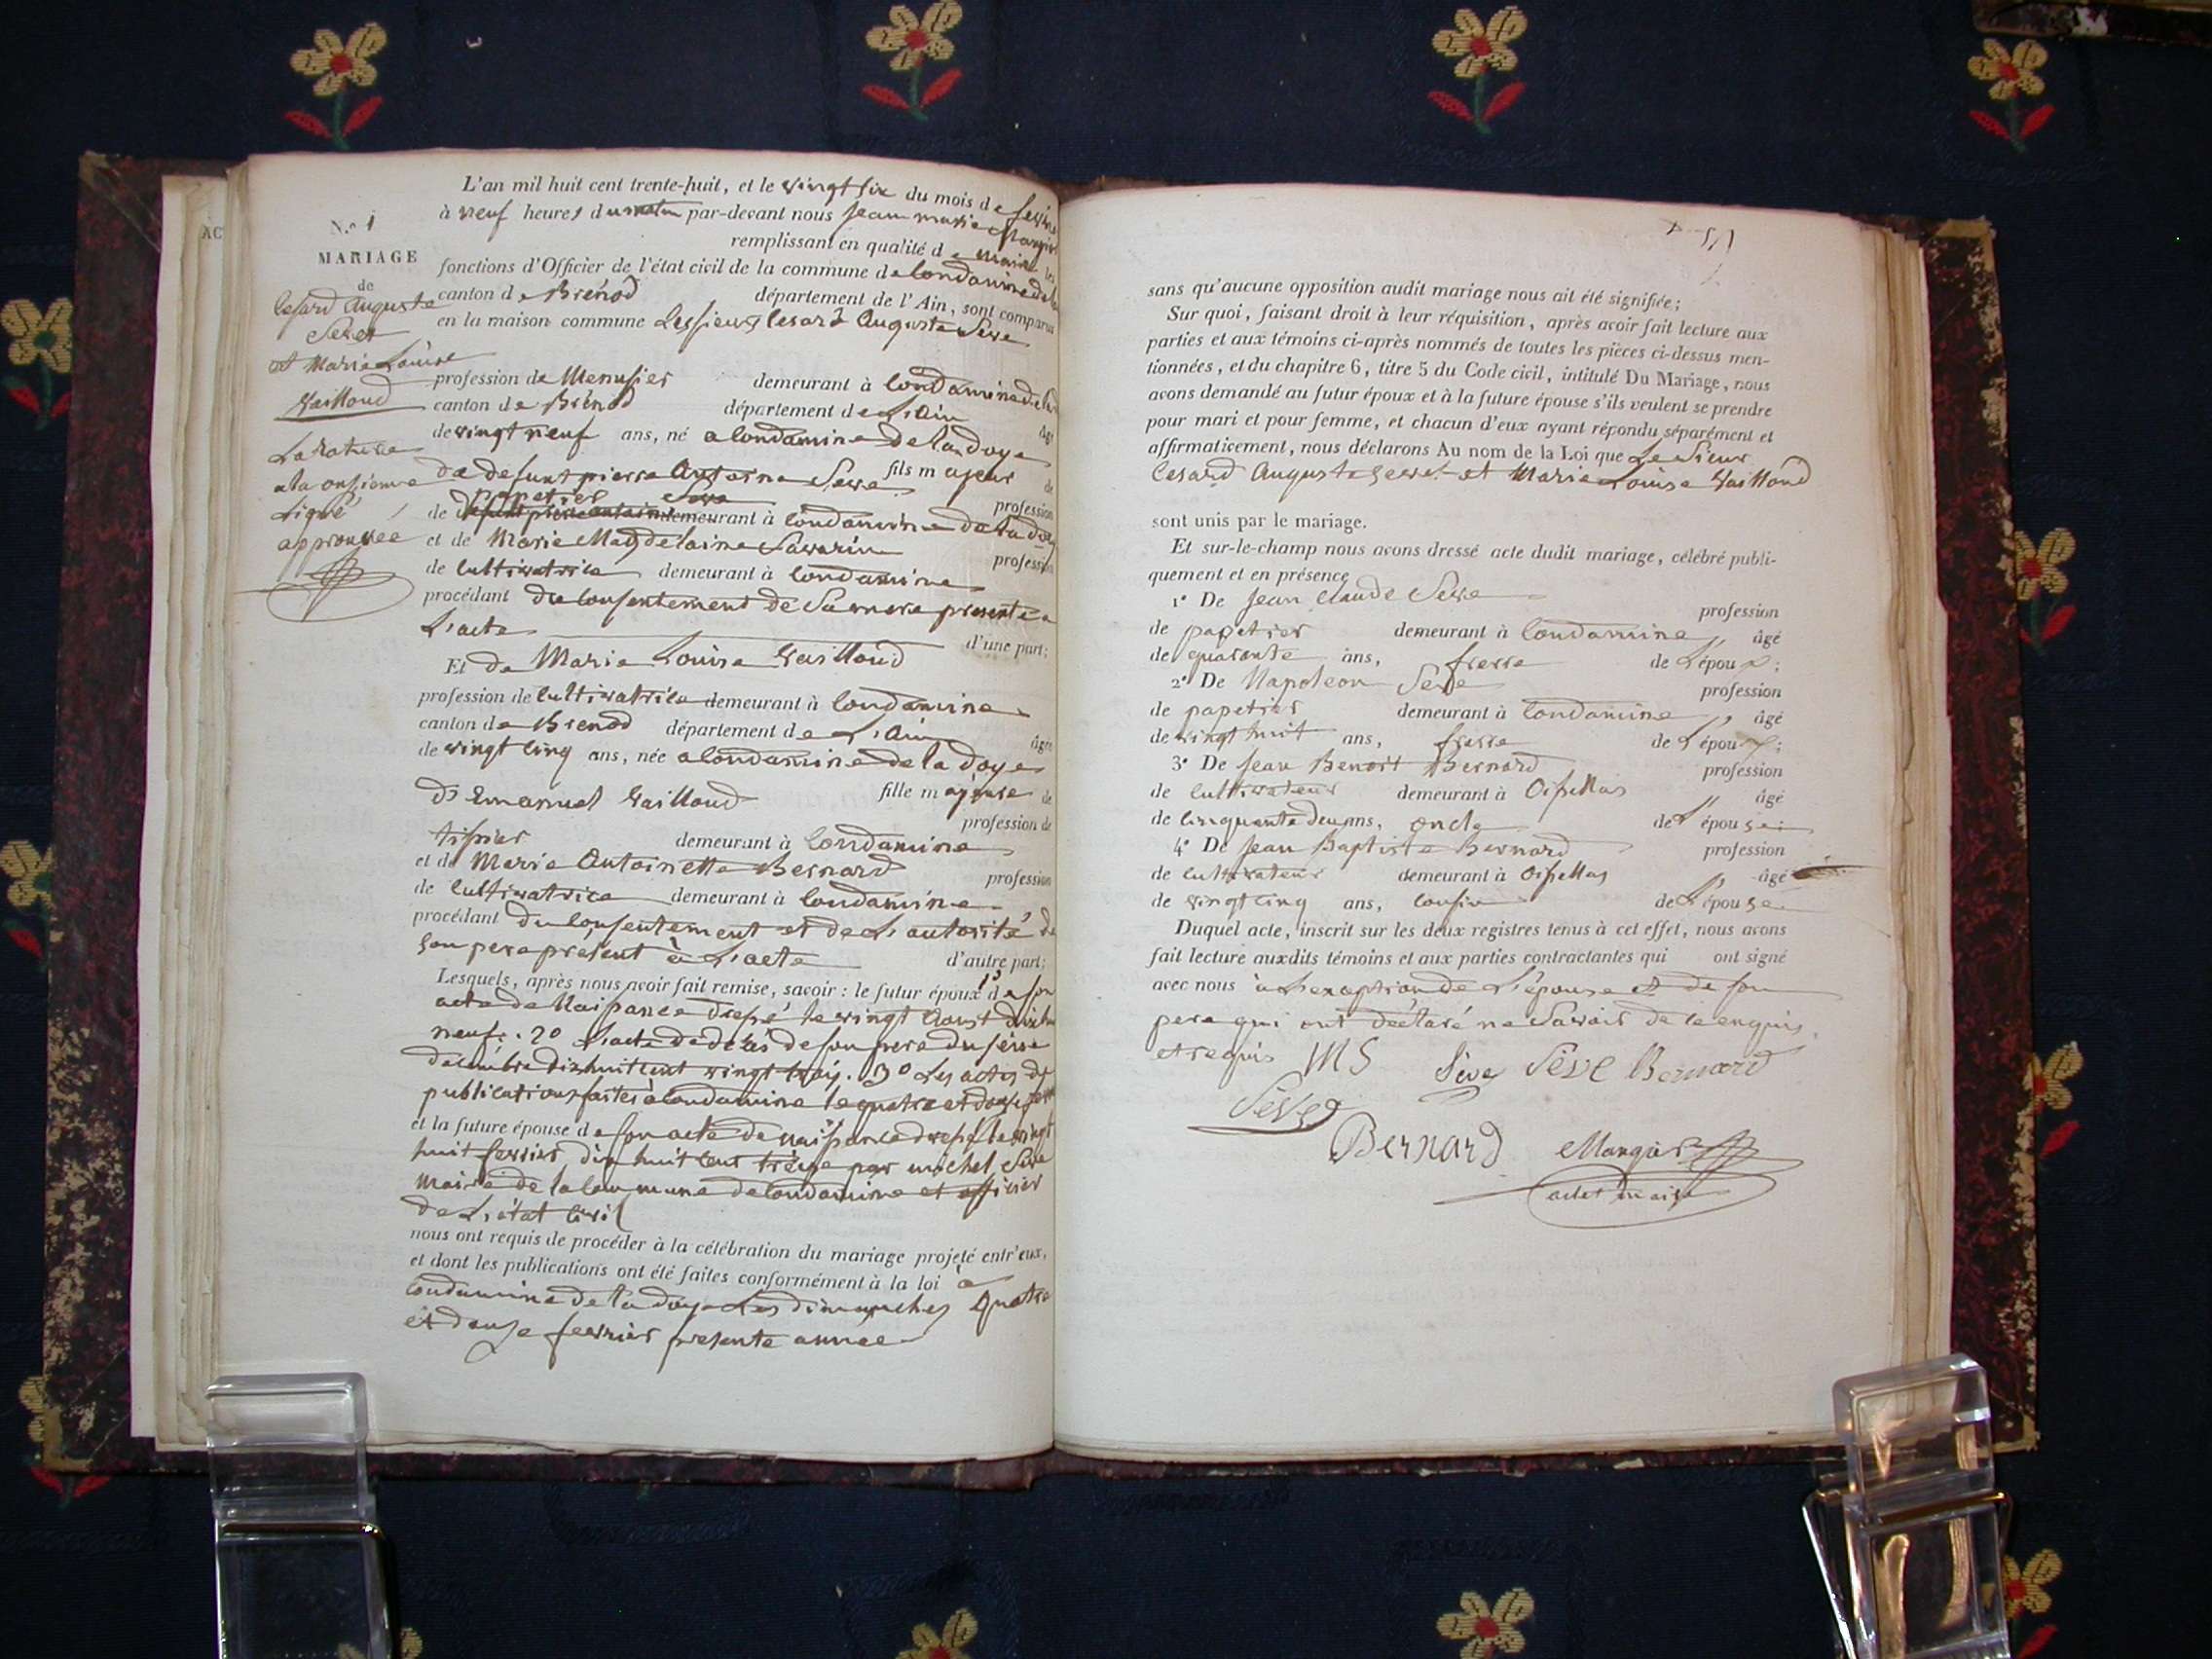 AC
N.º 1
MARIAGE
de
Cesard Auguste
Seve
et Marie Louise
Vailloud
La rature
a la onsieme
Ligne
approuvée
L'an mil huit cent trente-huit, et le vingt six du mois de fevrier
à neuf heures du matin par-devant nous Jean marie Mangier
remplissant en qualité de maire les
fonctions d'Officier de l'état civil de la commune de Condamine de la
canton de Brénod département de l'Ain, sont comparus
en la maison commune Les sieurs Cesard Auguste Seve
profession de Menusier demeurant à Condamine de la
canton de Brénod département de L'Ain âgé
de vingt neuf ans, né a Condamine de la doye
de defunt pierre Antoine Seve fils majeur de
papetier profession
de demeurant à Condamine de la doy
et de Marie Magdelaine Savarin profession
de Cultivatrice demeurant à Condamine
procédant du Consentement de Sa mere presente a
L'acte d'une part;
Et de Marie Louise Vailloud
profession de Cultivatrice demeurant à Condamine
canton de Brenod département de L'Ain âgée
de vingt cinq ans, née a Condamine de la doye
d'Emanuel Vailloud fille majeure de
profession de
tissier demeurant à Condamine
et de Marie Antoinette Bernard profession
de Cultivatrice demeurant à Condamine
procédant du Consentement et de L'autorité de
Son pere present à L'acte d'autre part;
Lesquels, après nous avoir fait remise, savoir: le futur époux 1º de son
acte de Naissance dressé le vingt Aoust dix huit
neuf. 2º L'acte de décès de son pere du seise
décembre dix huit cent vingt troy. 3º Les actes de
publications faites à Condamine le quatre et douse
et la future épouse de son acte de naissance dressé le vingt
huit fevrier dix huit cent treise par michel Seve
Maire de la Commune de Condamine et officier
de L'état Civil
nous ont requis de procéder à la célébration du mariage projeté entr'eux,
et dont les publications ont été faites conformément à la loi à
Condamine de la doye Les dimanches quatre
et douse fevrier presente année
sans qu'aucune opposition audit mariage nous ait été signifiée;
Sur quoi, faisant droit à leur réquisition, après avoir fait lecture aux
parties et aux témoins ci-après nommés de toutes les pièces ci-dessus men-
tionnées, et du chapitre 6, titre 5 du Code civil, intitulé Du Mariage, nous
avons demandé au futur époux et à la future épouse s'ils veulent se prendre
pour mari et pour femme, et chacun d'eux ayant répondu séparément et
affirmativement, nous déclarons Au nom de la Loi que Le Sieur
Cesard Auguste Seve et Marie Louise Vailloud
sont unis par le mariage.
Et sur-le-champ nous avons dressé acte dudit mariage, célébré publi-
quement et en présence
1º De Jean Claude Seve profession
de papetier demeurant à Condamine âgé
de quarante ans, frerre de L'époux;
2º De Napoleon Seve profession
de papetier demeurant à Condamine âgé
de vingt huit ans, frerre de L'époux;
3º De Jean Benoit Bernard profession
de Cultivateur demeurant à Oisellas âgé
de Cinquante deux ans, oncle de L'épouse;
4º De Jean Baptiste Bernard profession
de Cultivateur demeurant à Oisellas âgé
de vingt cinq ans, Cousin de L'épouse
Duquel acte, inscrit sur les deux registres tenus à cet effet, nous avons
fait lecture auxdits témoins et aux parties contractantes qui ont signé
avec nous à L'exeption de L'épouse et de son
pere qui ont déclaré ne Savoir de ce enquis
et requis MS Sève Séve Bernard
Sève
Bernard Mangier
adet maire